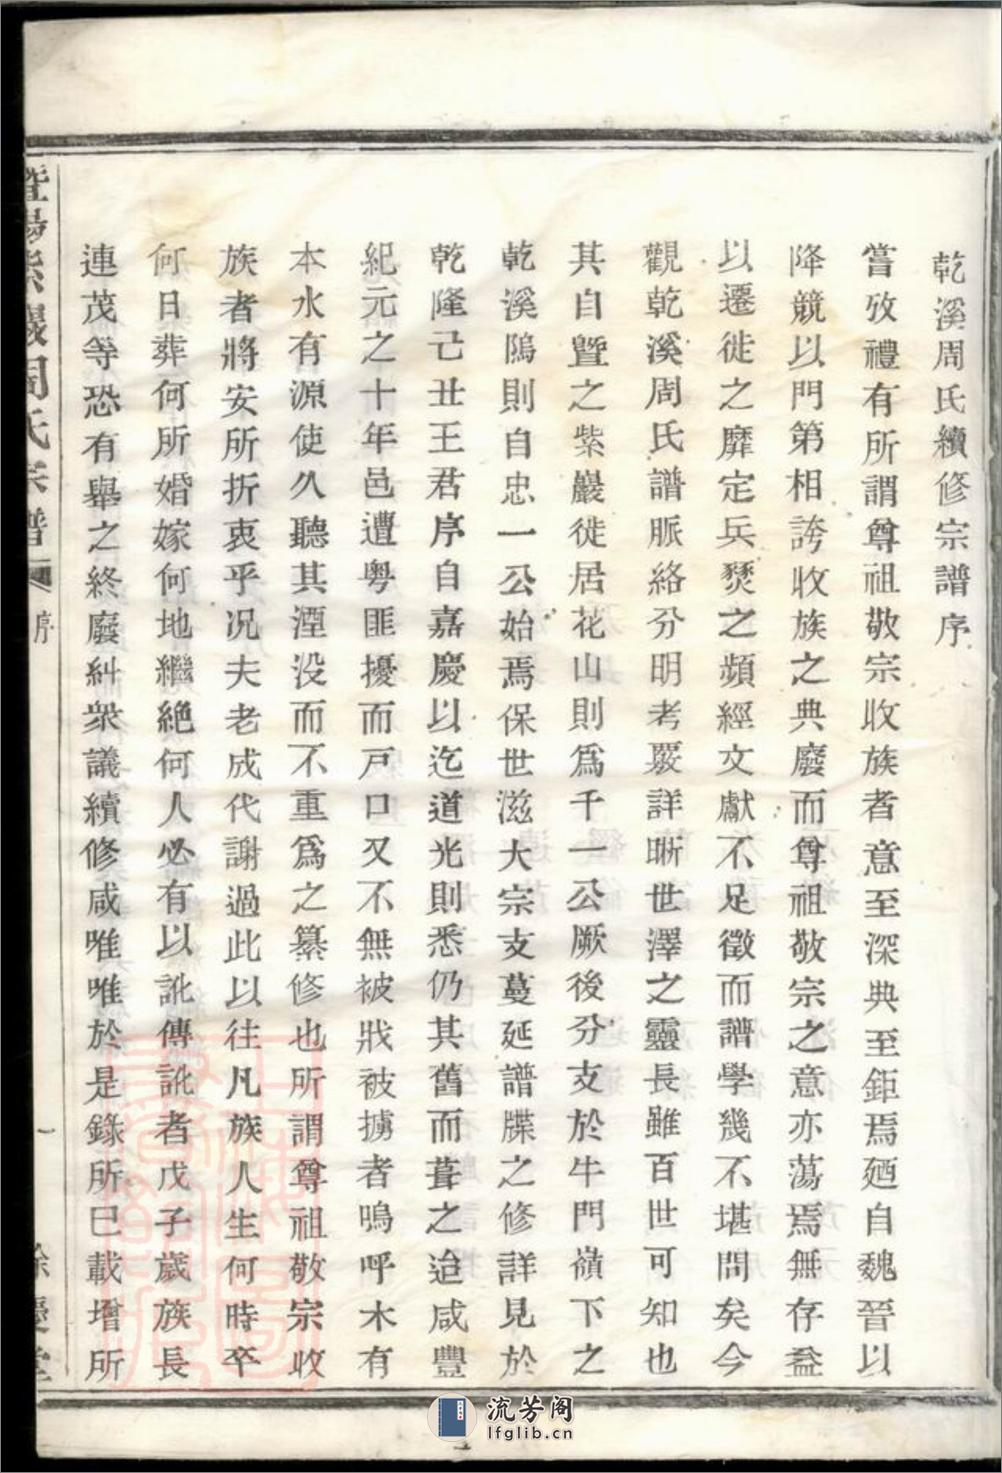 乾溪周氏續修宗譜序
嘗攷禮有所謂尊祖敬宗收族者意至深典至鉅焉廼自魏晉以
降競以門第相誇收族之典廢而尊祖敬宗之意亦蕩焉無存益
以遷徙之靡定兵燹之頻經文獻不足徵而譜學幾不堪問矣今
觀乾溪周氏譜脈絡分明考覈詳晰世澤之靈長雖百世可知也
其自曁之紫巖徙居花山則爲千一公厥後分支於牛門嶺下之
乾溪隖則自忠一公始焉保世滋大宗支蔓延譜牒之修詳見於
乾隆己丑王君序自嘉慶以迄道光則悉仍其舊而葺之迨咸豐
紀元之十年邑遭粵匪擾而戸口又不無被戕被擄者嗚呼木有
本水有源使久聽其湮没而不重爲之纂修也所謂尊祖敬宗收
族者將安所折衷乎况夫老成代謝過此以往凡族人生何時卒
何日葬何所婚嫁何地繼絶何人必有以訛傳訛者戊子歲族長
連茂等恐有舉之終廢糾衆議續修咸唯唯於是錄所巳載增所
暨陽紫巖周氏宗譜
序
一
餘慶堂
流芳阁
lfglib.cn